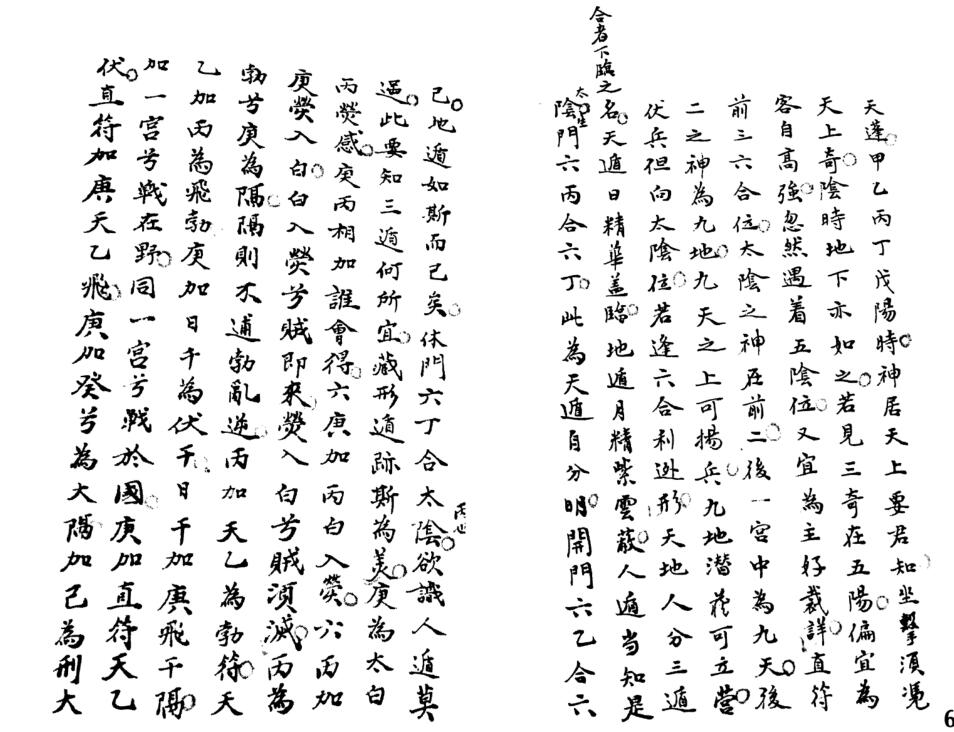 天蓬甲乙丙丁戊陽時神居天上要君知坐擊須憑
天上奇陰時地下亦如之若見三奇在五陽偏宜為
客自高強忽然遇着五陰位又宜為主好裁詳直符
前三六合位太陰之神在前二後一宮中為九天後
二之神為九地九天之上可揚兵九地潛藏可立營
伏兵但向太陰位若逢六合利逃形天地人分三遁
名天遁日精華蓋臨地遁月精紫雲蔽人遁当知是
合者下臨之
太生
陰門六丙合六丁此為天遁自分明開門六乙合六
己地遁如斯而已矣休門六丁合太陰欲識人遁莫
丙也
過此要知三遁何所宜藏形遁跡斯為美庚為太白
丙熒惑庚丙相加誰會得六庚加丙白入熒六丙加
庚熒入白白入熒兮賊即來熒入白兮賊須滅丙為
勃兮庚為隔隔則不逋勃亂逆丙加天乙為勃符天
乙加丙為飛勃庚加日干為伏干日干加庚飛干隔
加一宮兮戰在野同一宮兮戰於國庚加直符天乙
伏直符加庚天乙飛庚加癸兮為大隔加己為刑大
6